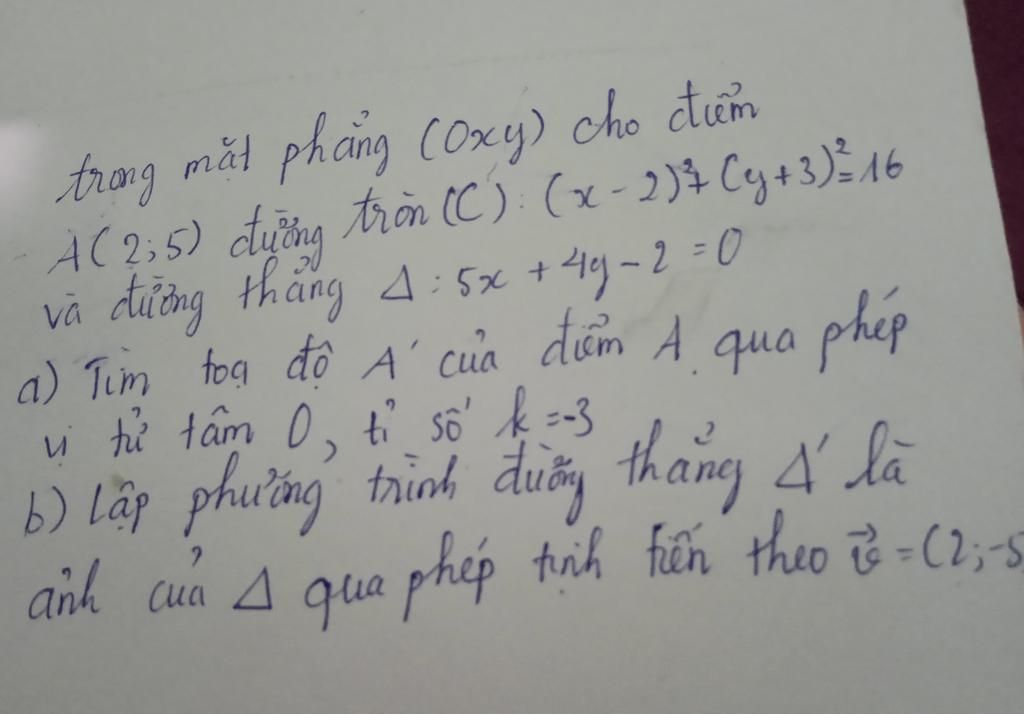 trong mặt phẳng (Oxy) cho điểm
A(2;5) đường tròn (C): (x-2)²+(y+3)²=16
và đường thẳng Δ: 5x+4y-2=0
a) Tìm toạ độ A' của điểm A qua phép
vị tử tâm O, tỉ số k=-3
b) lập phương trình đường thẳng Δ' là
ảnh của Δ qua phép tịnh tiến theo v⃗=(2;-5